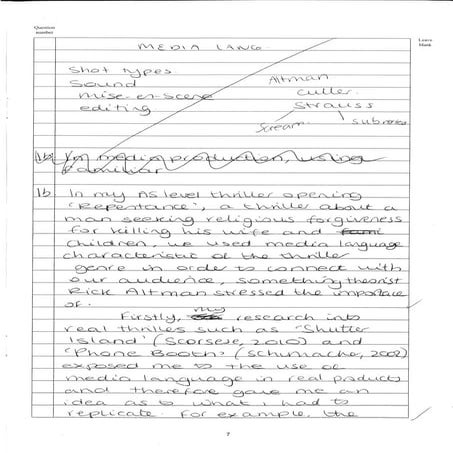 Question
number
Leave
blank
MEDIA LANG.
Shot types
Sound
mise-en-scene
editing
Altman
Culler
Strauss
Scream
1b In media production, using
familiar
1b In my AS level thriller opening
'Repentance', a thriller about a
man seeking religious forgiveness
for killing his wife and
children, we used media language
characteristic of the thriller
genre in order to connect with
our audience, something theorist
Rick Altman stressed the importance
of.
Firstly, my research into
real thrillers such as 'Shutter
Island' (Scorsese, 2010) and
'Phone Booth' (Schumacher, 2002)
exposed me to the use of
media language in real products
and therefore gave me an
idea as to what I had to
replicate. For example, the
7